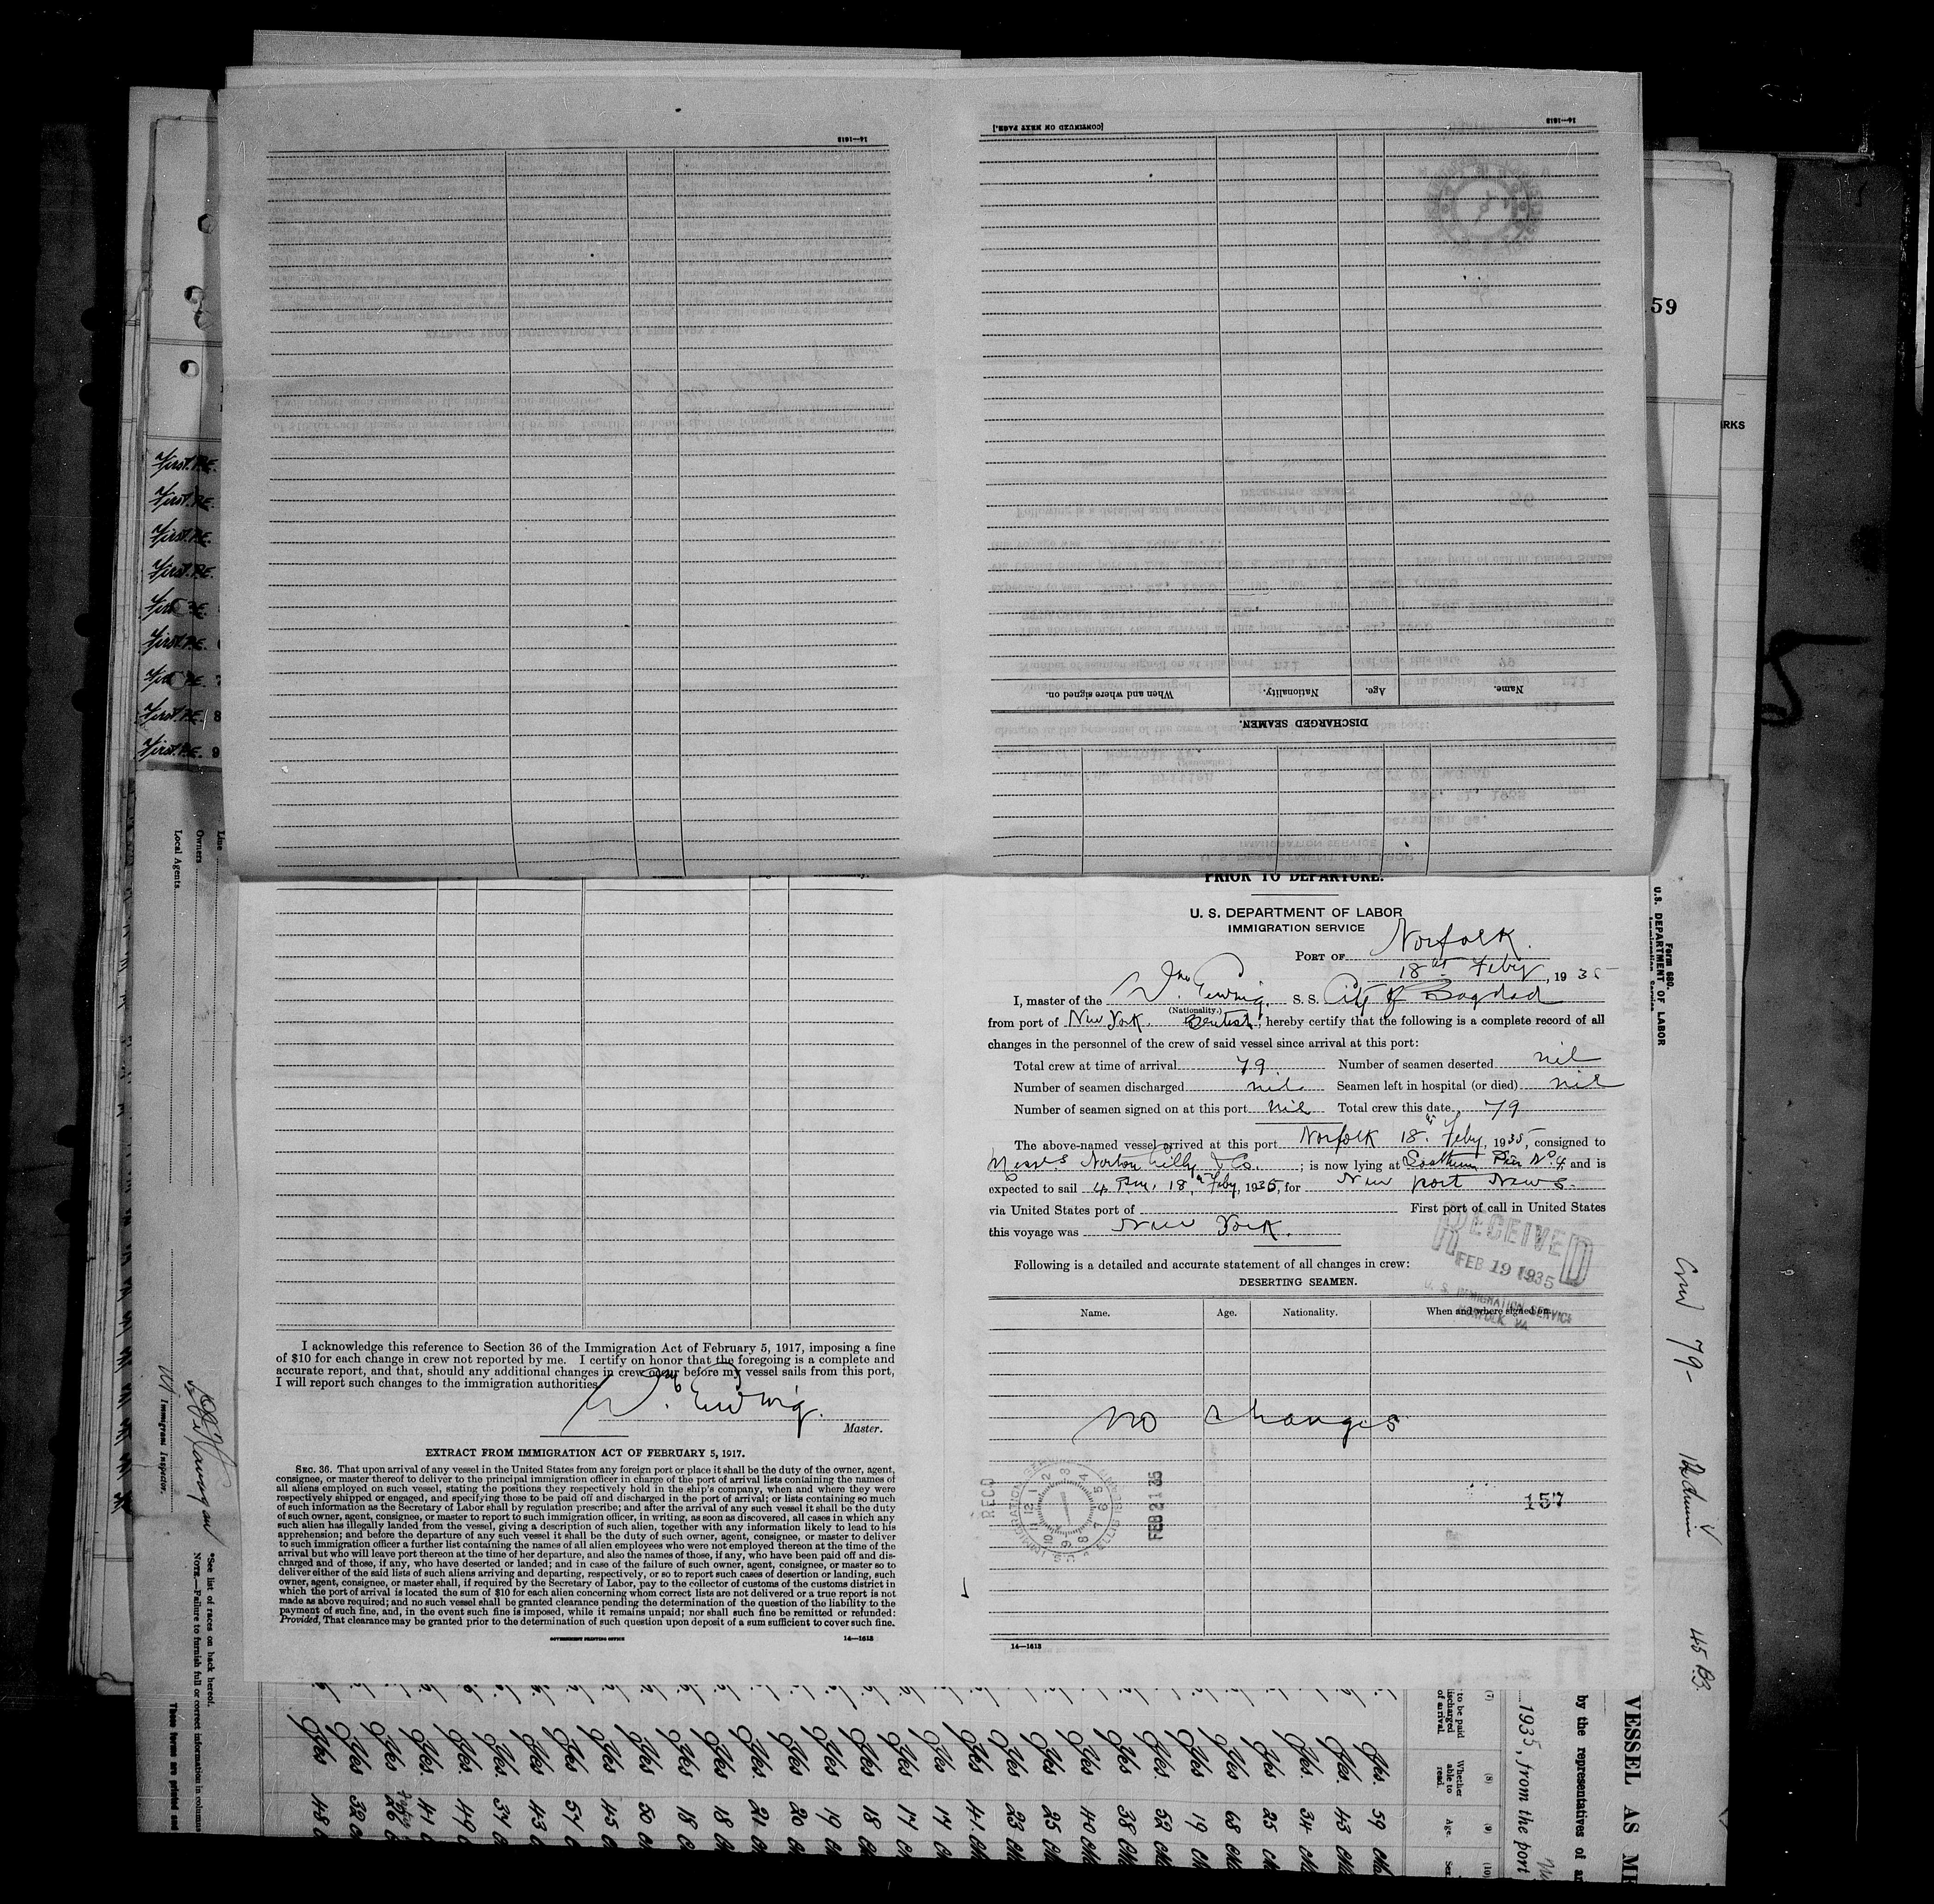 14—1613
[CONTINUED ON NEXT PAGE.]
14—1613
Name.
Age.
Nationality.
When and where signed on.
DISCHARGED SEAMEN.
59
RKS
First. P.E.
First. P.E.
First. P.E.
First. P.E.
First P.E.
First. P.E.
First P.E. 7
First. P.E. 8
First. P.E. 9
Line
Owners
Local Agents
Immigrant Inspector.
*See list of races on back hereof.
NOTE.—Failure to furnish full or correct information in columns
These forms are printed and
PRIOR TO DEPARTURE.
U. S. DEPARTMENT OF LABOR
IMMIGRATION SERVICE
PORT OF Norfolk.
18th Feby, 1935
I, master of the Wm. S. S. City of Bagdad
(Nationality.)
from port of New York British, hereby certify that the following is a complete record of all
changes in the personnel of the crew of said vessel since arrival at this port:
Total crew at time of arrival 79. Number of seamen deserted nil
Number of seamen discharged nil Seamen left in hospital (or died) nil
Number of seamen signed on at this port nil Total crew this date 79
The above-named vessel arrived at this port Norfolk 18th Feby, 1935, consigned to
Messrs Norton Lilly & Co. ; is now lying at Southern Pier No. 4 and is
expected to sail 4 P.m. 18th Feby, 1935, for New port News.
via United States port of First port of call in United States
this voyage was New York.
Following is a detailed and accurate statement of all changes in crew:
DESERTING SEAMEN.
Name. Age. Nationality. When and where signed on.
RECEIVED
FEB 19 1935
U. S. IMMIGRATION SERVICE
NORFOLK VA
no changes
157
REC'D
FEB 21 35
14—1613
I acknowledge this reference to Section 36 of the Immigration Act of February 5, 1917, imposing a fine
of $10 for each change in crew not reported by me. I certify on honor that the foregoing is a complete and
accurate report, and that, should any additional changes in crew occur before my vessel sails from this port,
I will report such changes to the immigration authorities.
Master.
EXTRACT FROM IMMIGRATION ACT OF FEBRUARY 5, 1917.
SEC. 36. That upon arrival of any vessel in the United States from any foreign port or place it shall be the duty of the owner, agent,
consignee, or master thereof to deliver to the principal immigration officer in charge of the port of arrival lists containing the names of
all aliens employed on such vessel, stating the positions they respectively hold in the ship's company, when and where they were
respectively shipped or engaged, and specifying those to be paid off and discharged in the port of arrival; or lists containing so much
of such information as the Secretary of Labor shall by regulation prescribe; and after the arrival of any such vessel it shall be the duty
of such owner, agent, consignee, or master to report to such immigration officer, in writing, as soon as discovered, all cases in which any
such alien has illegally landed from the vessel, giving a description of such alien, together with any information likely to lead to his
apprehension; and before the departure of any such vessel it shall be the duty of such owner, agent, consignee, or master to deliver
to such immigration officer a further list containing the names of all alien employees who were not employed thereon at the time of the
arrival but who will leave port thereon at the time of her departure, and also the names of those, if any, who have been paid off and dis-
charged and of those, if any, who have deserted or landed; and in case of the failure of such owner, agent, consignee, or master so to
deliver either of the said lists of such aliens arriving and departing, respectively, or so to report such cases of desertion or landing, such
owner, agent, consignee, or master shall, if required by the Secretary of Labor, pay to the collector of customs of the customs district in
which the port of arrival is located the sum of $10 for each alien concerning whom correct lists are not delivered or a true report is not
made as above required; and no such vessel shall be granted clearance pending the determination of the question of the liability to the
payment of such fine, and, in the event such fine is imposed, while it remains unpaid; nor shall such fine be remitted or refunded:
Provided, That clearance may be granted prior to the determination of such question upon deposit of a sum sufficient to cover such fine.
GOVERNMENT PRINTING OFFICE
14—1613
Form 680.
U.S. DEPARTMENT OF LABOR
Immigration Service
Crew 79-
45 B.B.
VESSEL AS
by the representatives of
1935, from the port
(7)
to be paid
discharged
of arrival.
(8)
Whether
able to
read.
(9)
Age.
(10)
Sex
Yes 48
Yes 32
Yes 26
Yes. 41
Yes. 49
Yes. 37
Yes 43
Yes 57
Yes 45
Yes 50
Yes 18
Yes 18
Yes 21
Yes 20
Yes 19
Yes 18
Yes 17
Yes 17
Yes 41
Yes 23
Yes 25
Yes 40
Yes 38
Yes. 52
Yes 19
Yes 68
Yes 25
Yes. 34
Yes. 43
Yes. 59